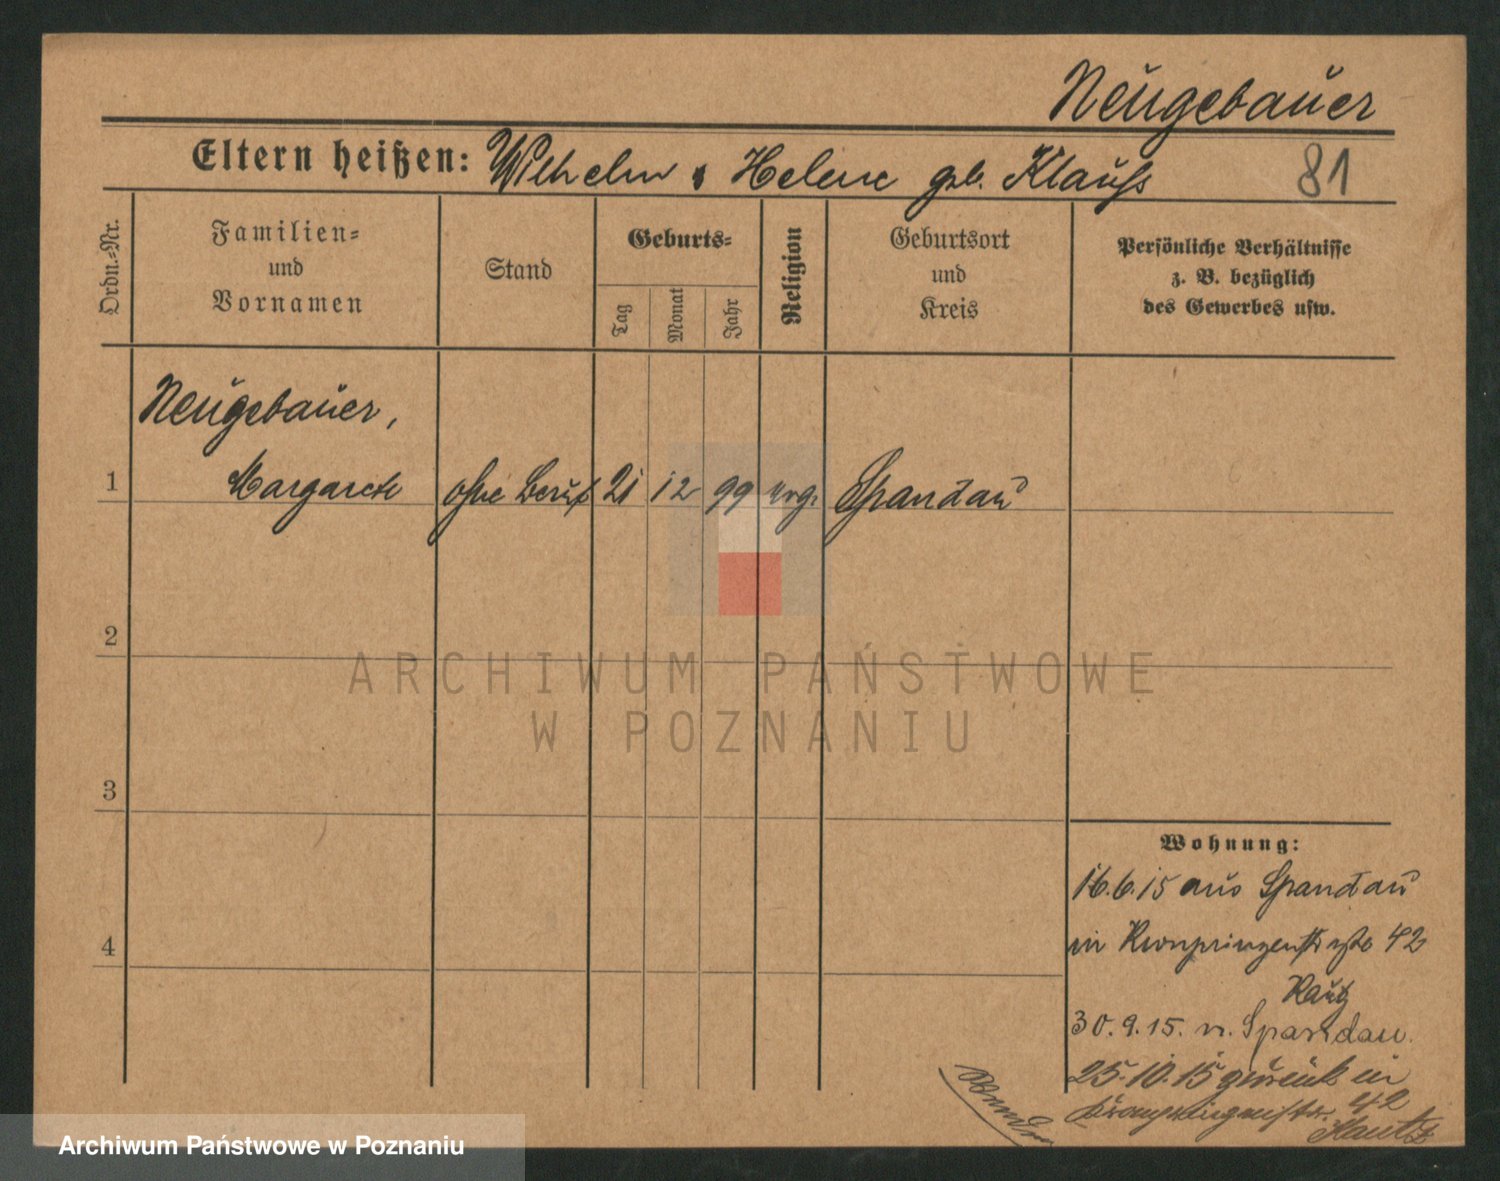 Neugebauer
Eltern heißen: Wilhelm u Helene geb. Klauß
81
Ordn.-Nr.
Familien-
und
Vornamen
Stand
Geburts-
Tag
Monat
Jahr
Religion
Geburtsort
und
Kreis
Persönliche Verhältnisse
z. B. bezüglich
des Gewerbes usw.
Neugebauer,
1 Margarete ohne Beruf 21 12 99 evg. Spandau
2
3
4
Wohnung:
16.6.15 aus Spandau
in Kronprinzenstraße 42
Kautz
30.9.15. n. Spandau.
25.10.15 zurück in
Kronprinzenstr. 42
Kautz
ARCHIWUM PAŃSTWOWE
W POZNANIU
Archiwum Państwowe w Poznaniu